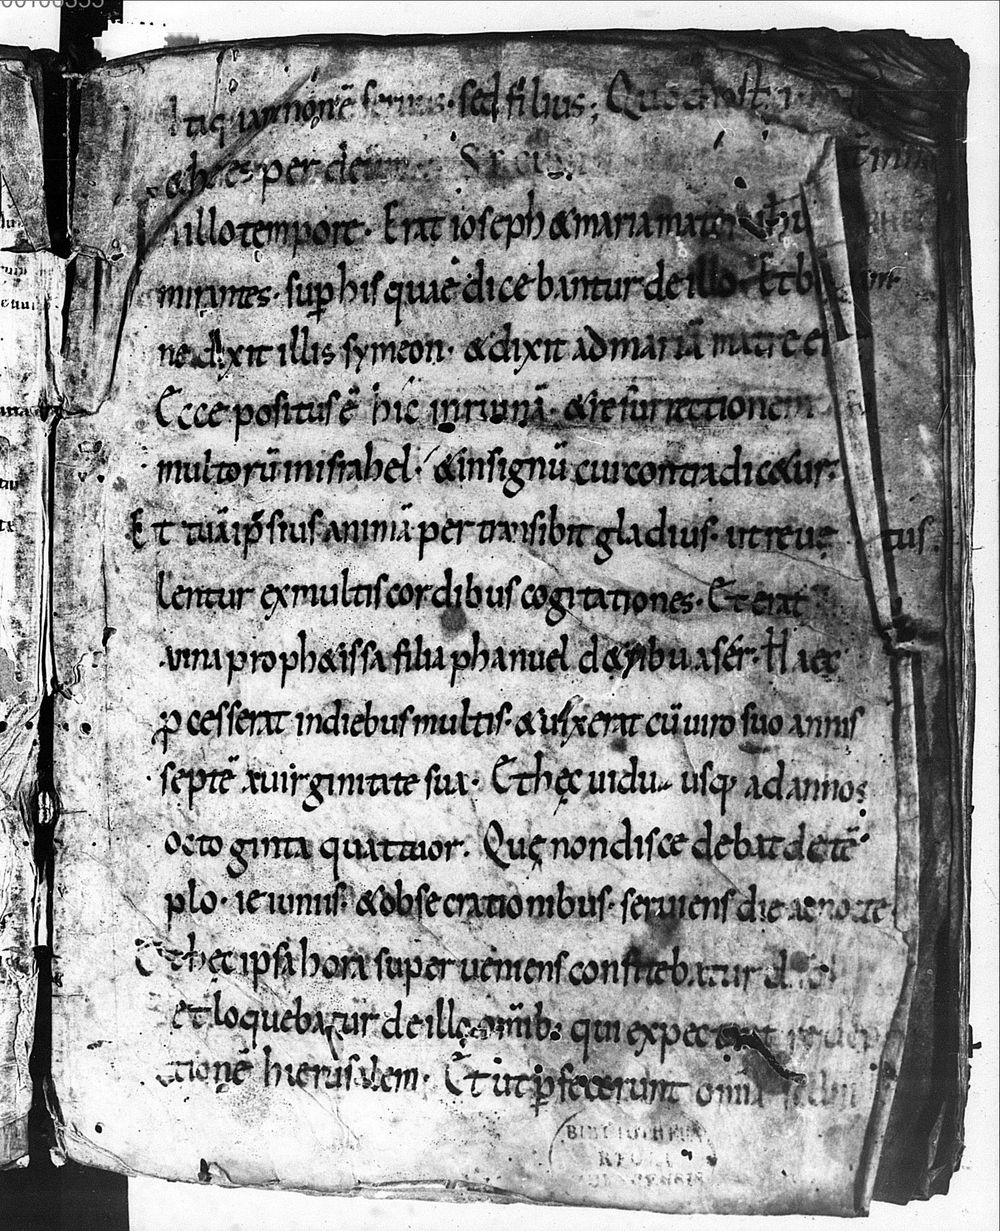 itaq; iam non ē seruus · sed filius; Quod si
& heres per deum Secun
illo tempore · Erat ioseph & maria mater
mirantes · sup his quae dicebantur de illo · Et b
nedixit illis symeon · & dixit ad mariā matrē ei
Ecce positus ē hic in ruinā · & resurrectionem
multorū in israhel · & in signū cui contradic&ur ·
Et tuā ipsius animā pertransibit gladius · ut reue
lentur ex multis cordibus cogitationes · Et erat
anna proph&issa filia phanuel de tribu aser · Haec
pcesserat in diebus multis · & uixerat cū uiro suo annis
septē a uirginitate sua · Et hęc uidua usq; ad annos
octoginta quattuor · Quę non discedebat de tē
plo · ieiuniis · & obsecrationibus · seruiens die ac nocte
Et hęc ipsa hora superueniens confitebatur
et loquebatur de illo omib; qui expectabant redēp
tionē hierusalem · Et ut pfecerunt omnia
BIBLIOTHECA
REGIA